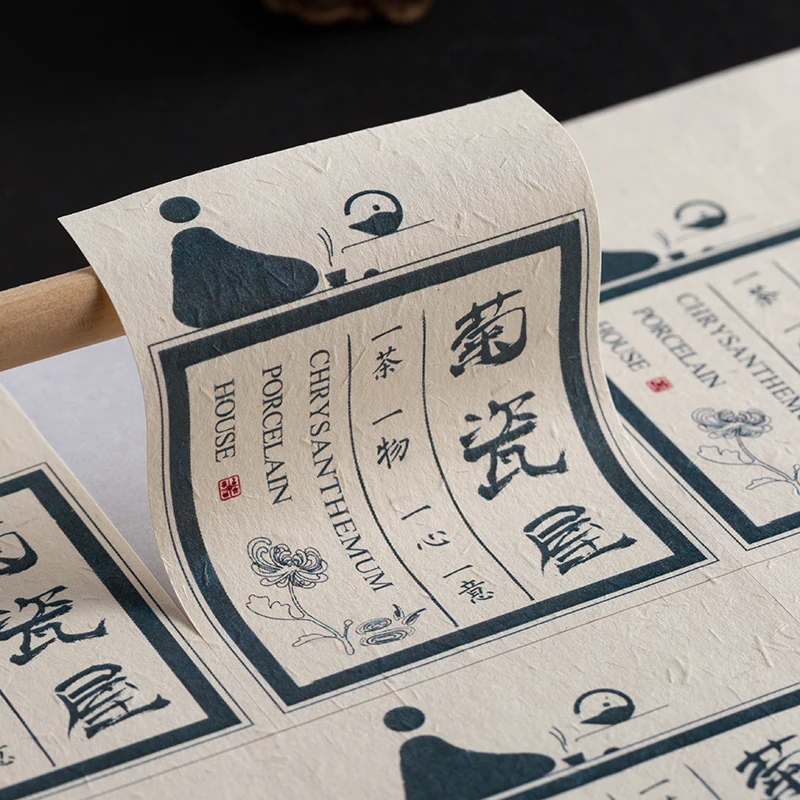 菊瓷屋
一茶一物一心一意
CHRYSANTHEMUM
PORCELAIN
HOUSE
一
CHRYSANTHEM
PORCELAIN
HOUSE
瓷屋
意
菊